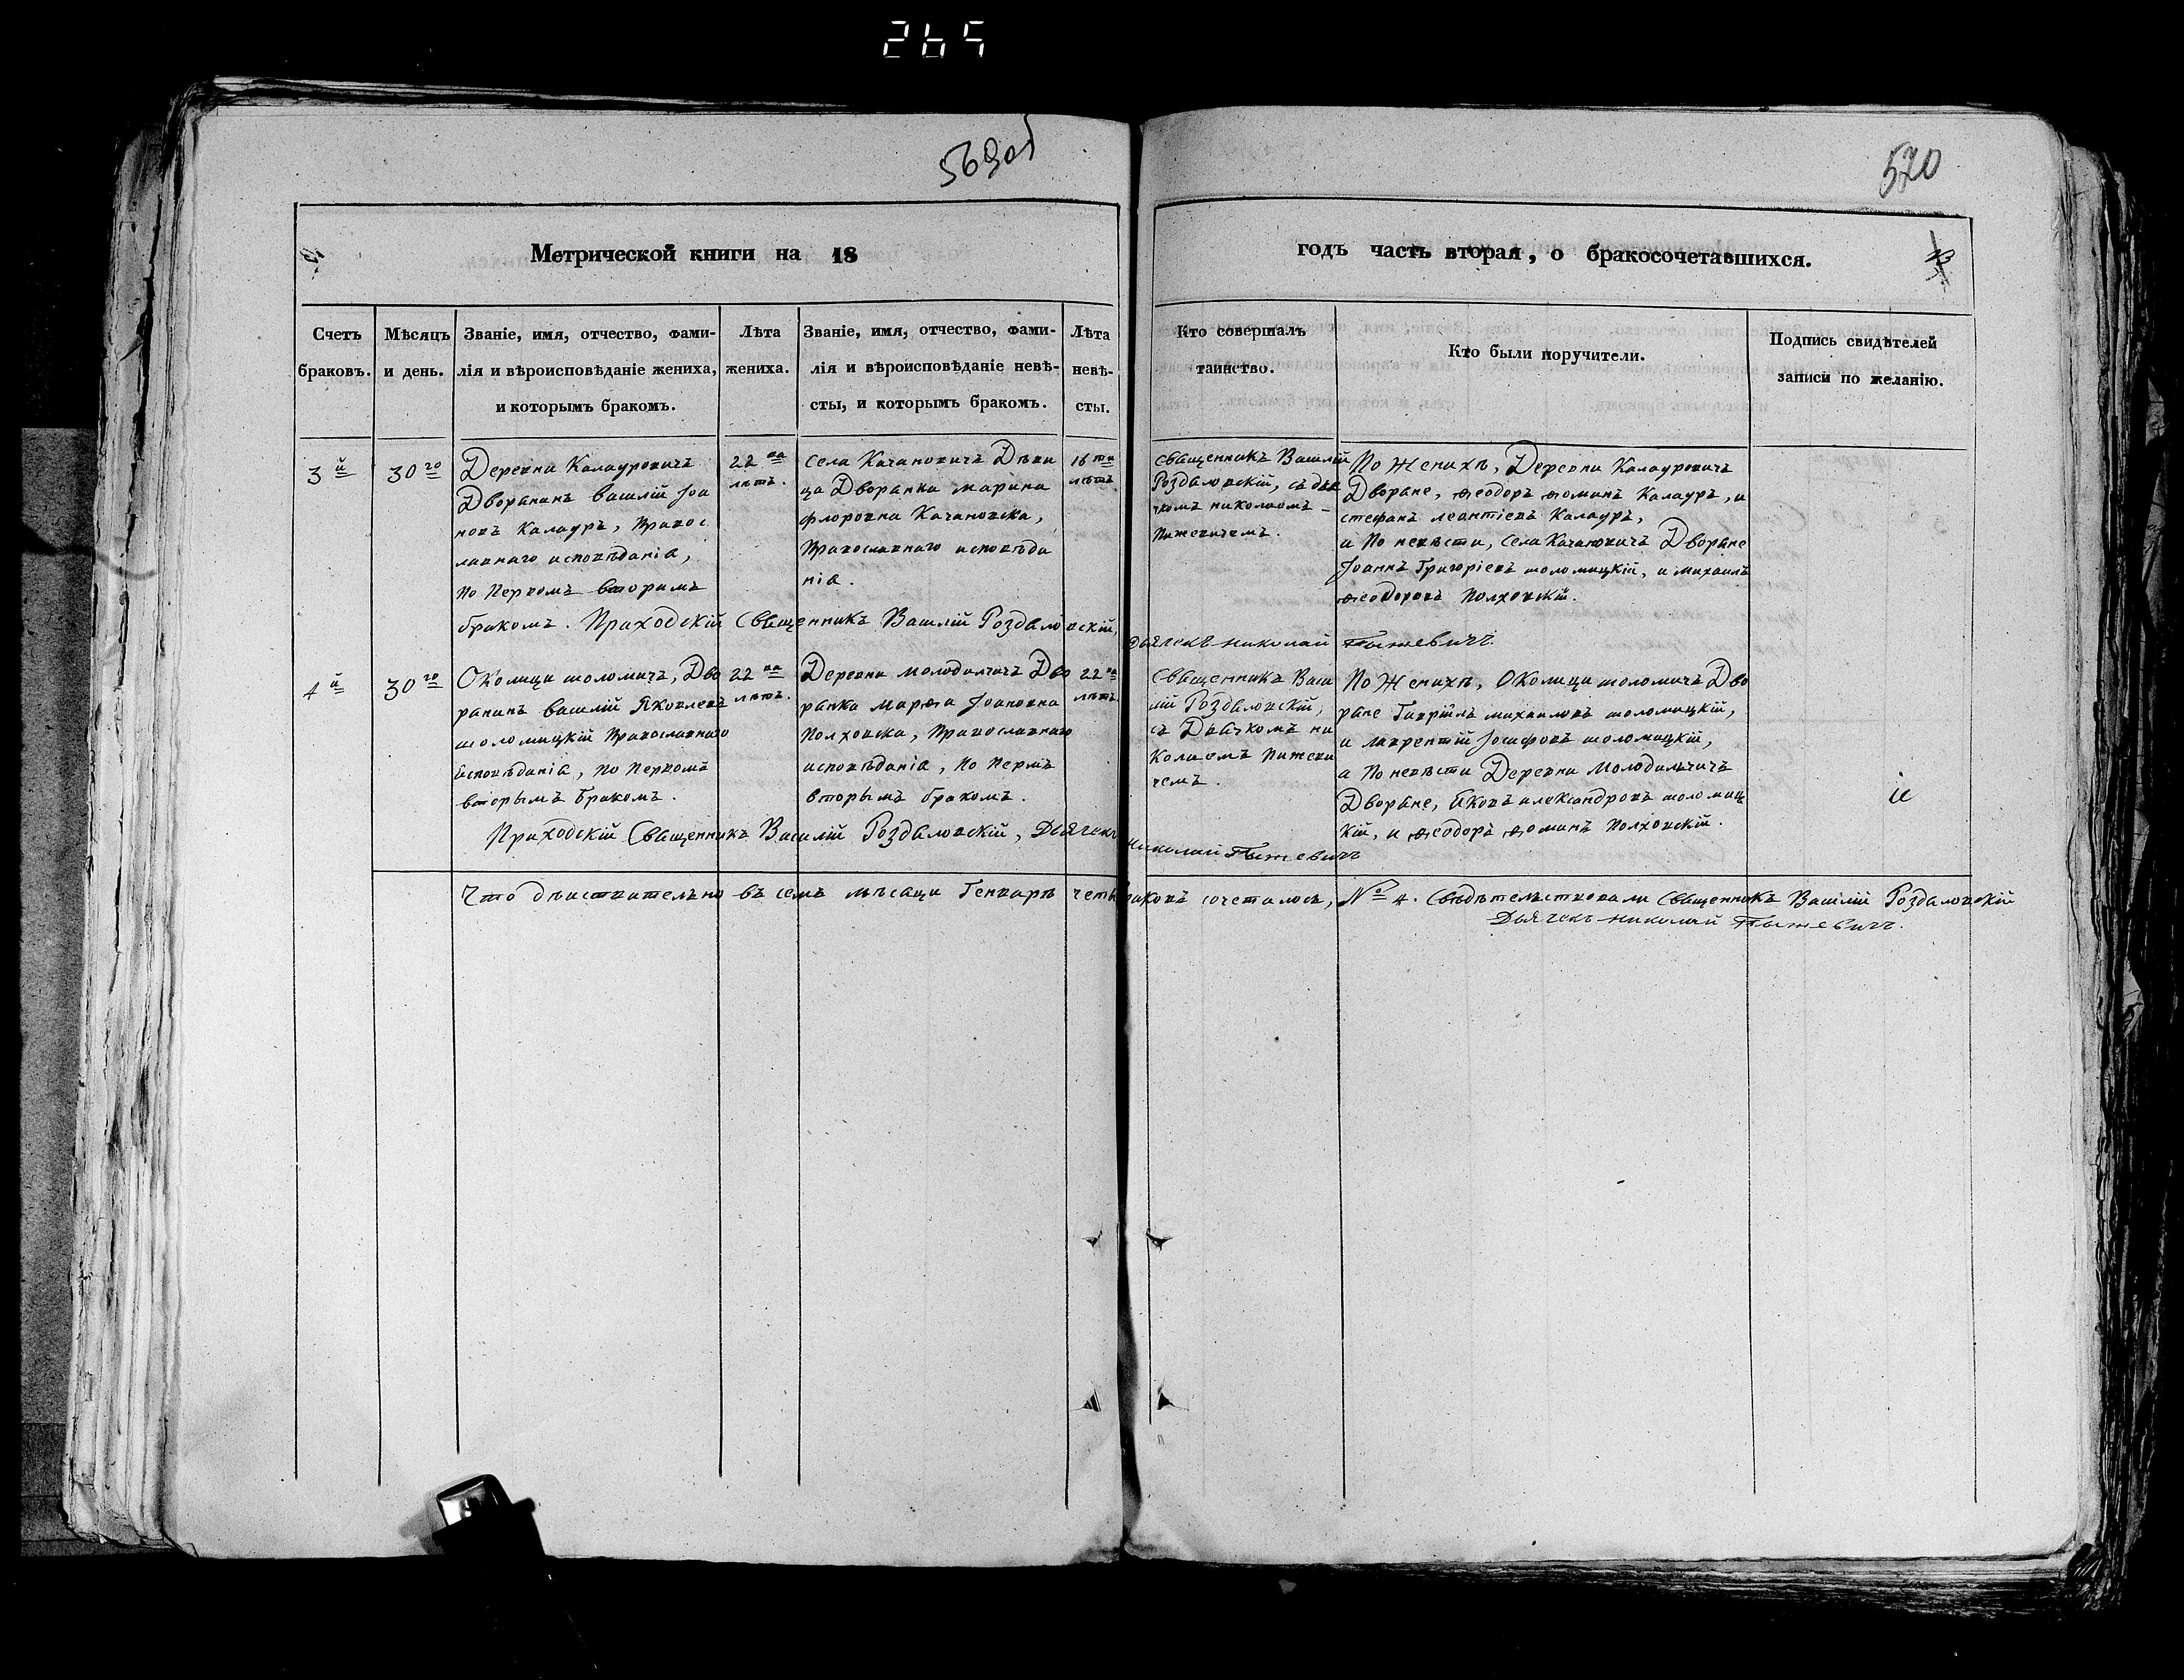 265
569об
570
Метрической книги на 18
годъ часть вторая, о бракосочетавшихся.
Счетъ браковъ.
Мѣсяцъ и день.
Званіе, имя, отчество, фами-
лія и вѣроисповѣданіе жениха,
и которымъ бракомъ.
Лѣта жениха.
Званіе, имя, отчество, фами-
лія и вѣроисповѣданіе невѣ-
сты, и которымъ бракомъ.
Лѣта невѣ-
сты.
Кто совершалъ
таинство.
Кто были поручители.
Подпись свидѣтелей
записи по желанію.
3й
30го
Деревни Калауровичъ
Дворанинъ василій Јоа
новъ Калауръ, Правос
лавнаго исповѣданіа,
по Первомъ вторимъ
бракомъ.
22ва
лѣтъ.
села Качановичъ Дѣви
ца Дворанка марина
флоровна Качановска,
Православнаго исповѣда
ніа.
16ти
лѣтъ
сващенникъ Василій
Роздаловскій, съ дьа
чкомъ николаомъ
Пижевичемъ.
По Женихѣ, Деревни Калауровичъ
Дворане, ѳеодоръ ѳоминъ Калауръ, и
стефанъ леонтіевъ Калауръ,
и По невѣсти, села Качановичъ Дворане
Јоаннъ Григоріевъ шоломицкій, и михаилъ
ѳеодоровъ Полховскій.
Приходскій Сващенникъ Василій Роздаловскій,
Дьячекъ николай Пыжевичъ.
4й
30го
Околици шоломичъ, Дво
ранинъ василій Яковлевъ
шоломицкій Православнаго
исповѣданіа, по Первомъ
вторымъ Бракомъ.
22ва
лѣтъ.
Деревни молодильчичъ Дво
ранка Марѳа Јоановна
Полховска, Православнаго
исповѣданіа, по Пермъ
вторымъ бракомъ.
22ва
лѣтъ
Сващенникъ Васи
лій Роздаловскій,
съ Дьачкомъ ни
Колаемъ Пижеви
чемъ.
По Женихѣ, Околици шоломичъ Дво
ране Гавріилъ михаиловъ шоломицкій,
и лаврентій Јосифовъ шоломицкій,
а По невѣсти Деревни Молодильчичъ
Дворане, Яковъ александровъ шоломиц
кій, и ѳеодоръ ѳоминъ Полховскій.
Приходскій Сващенникъ Василій Роздаловскій, Дьячекъ
николай Пыжевичъ
Что дѣиствительно въ семъ мѣсаци Генварѣ четы браковъ сочеталось, № 4. Свѣдѣтельствовали Сващенникъ Василій Роздаловскій
Дьячекъ николай Пыжевичъ.